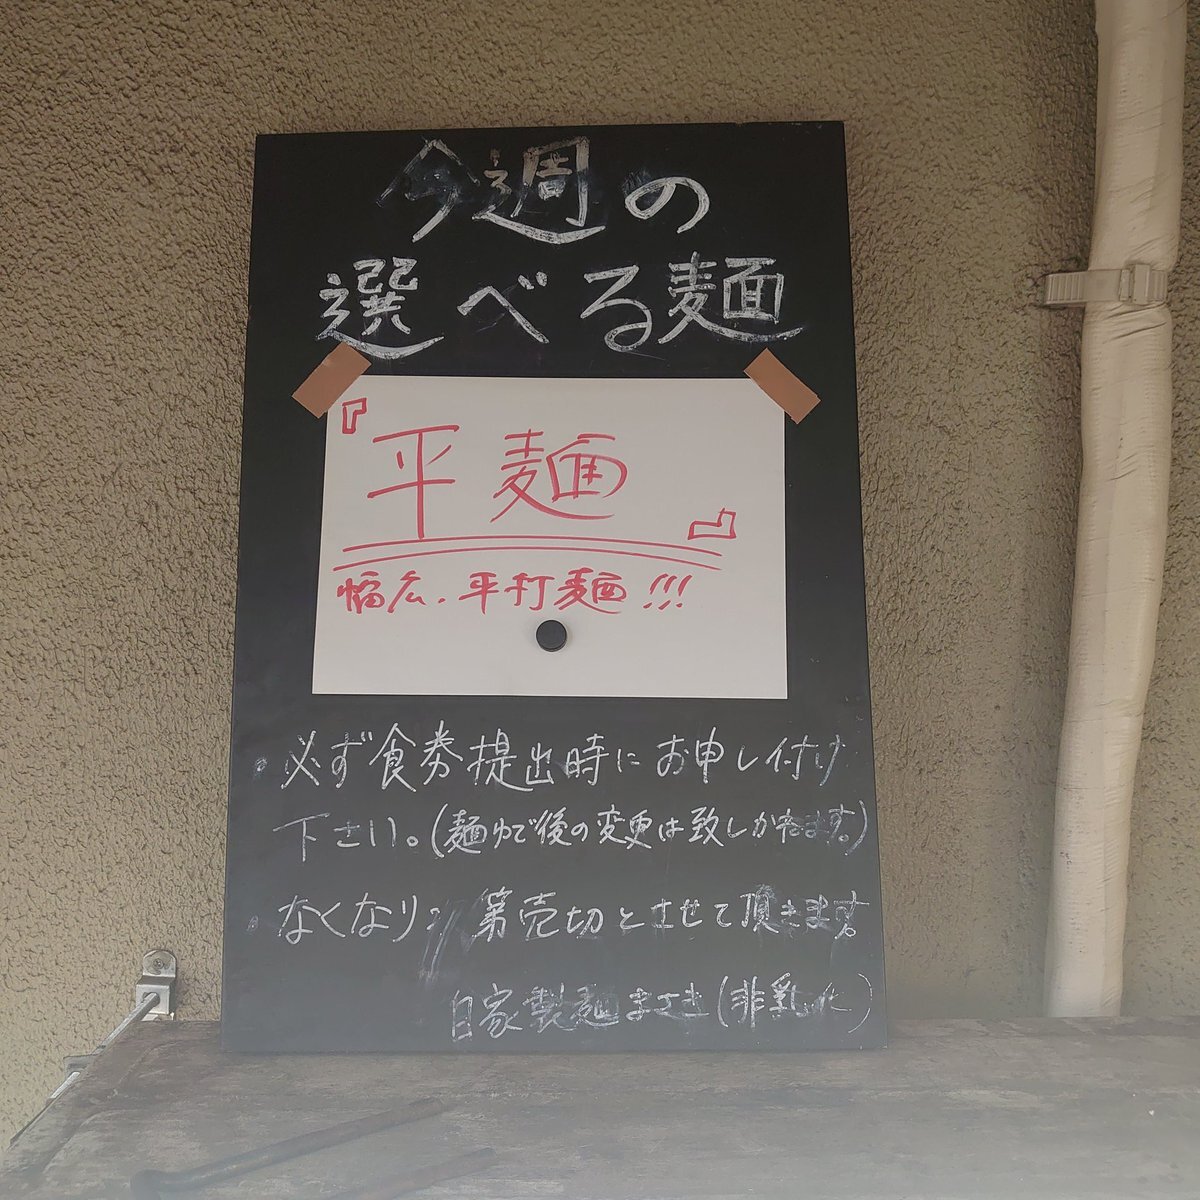 今週の
選べる麺
『平麺』
幅広、平打麺!!!
・必ず食券提出時にお申し付け
下さい。(麺ゆで後の変更は致しかねます。)
・なくなり次第売切とさせて頂きます。
自家製麺まさき(非乳化)